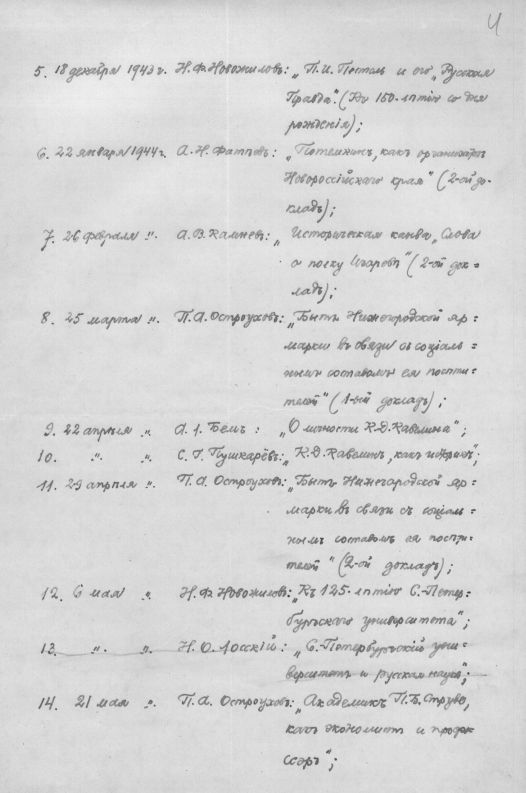 4
5. 18 декабря 1943 г. Н. Ф. Новожиловъ: „П. И. Пестель и его „Русская
Правда". (Къ 150-лѣтію со дня
рожденія);
6. 22 января 1944 г. А. Н. Фатѣевъ: „Потемкинъ, какъ организаторъ
Новороссійскаго края" (2-ой до-
кладъ);
7. 26 февраля „. А. В. Каминевъ: „Историческая канва „Слова
о полку Игоревѣ" (2-ой док=
ладъ);
8. 25 марта „. П. А. Остроуховъ: „Бытъ Нижегородской яр=
марки въ связи съ соціаль=
нымъ составомъ ея посѣти=
телей" (1-ый докладъ);
9. 22 апрѣля „. А. Л. Бемъ: „О личности К. Д. Кавелина";
10. „. „. С. Г. Пушкарёвъ: „К. Д. Кавелинъ, какъ историкъ";
11. 29 апрѣля „. П. А. Остроуховъ: „Бытъ Нижегородской яр=
марки въ связи съ соціаль=
нымъ составомъ ея посѣти=
телей" (2-ой докладъ);
12. 6 мая „. Н. Ф. Новожиловъ: „Къ 125-лѣтію С.-Петер=
бургскаго университета";
13. „. „. Н. О. Лосскій: „С.-Петербургскій уни=
верситетъ и русская наука";
14. 21 мая „. П. А. Остроуховъ: „Академикъ П. Б. Струве,
какъ экономистъ и профе=
ссоръ";